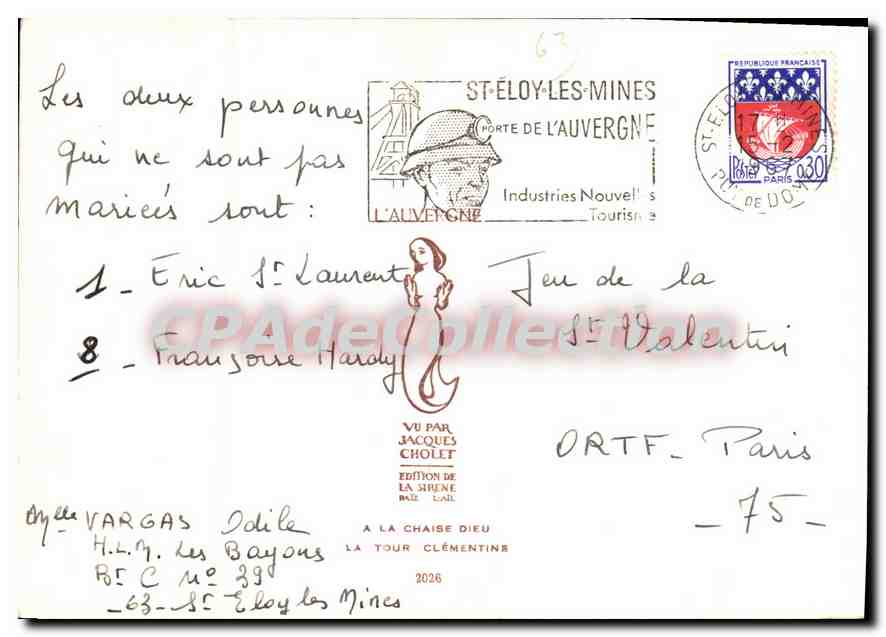 63
Les deux personnes
qui ne sont pas
mariées sont :
1 - Eric St Laurent
8 - Françoise Hardy
ST-ÉLOY-LES-MINES
PORTE DE L'AUVERGNE
Industries Nouvelles
Tourisme
L'AUVERGNE
REPUBLIQUE FRANÇAISE
0,30
POSTES
PARIS
17 H
15-12
1967
PUY DE DOME
Jeu de la
St Valentin
ORTF - Paris
- 75 -
CPAdeCollection
VU PAR
JACQUES
CHOLET
EDITION DE
LA SIRENE
A LA CHAISE DIEU
LA TOUR CLÉMENTINE
2026
Mlle VARGAS Odile
H.L.M. Les Bayons
Bt C No 39
-63- St Eloy les Mines